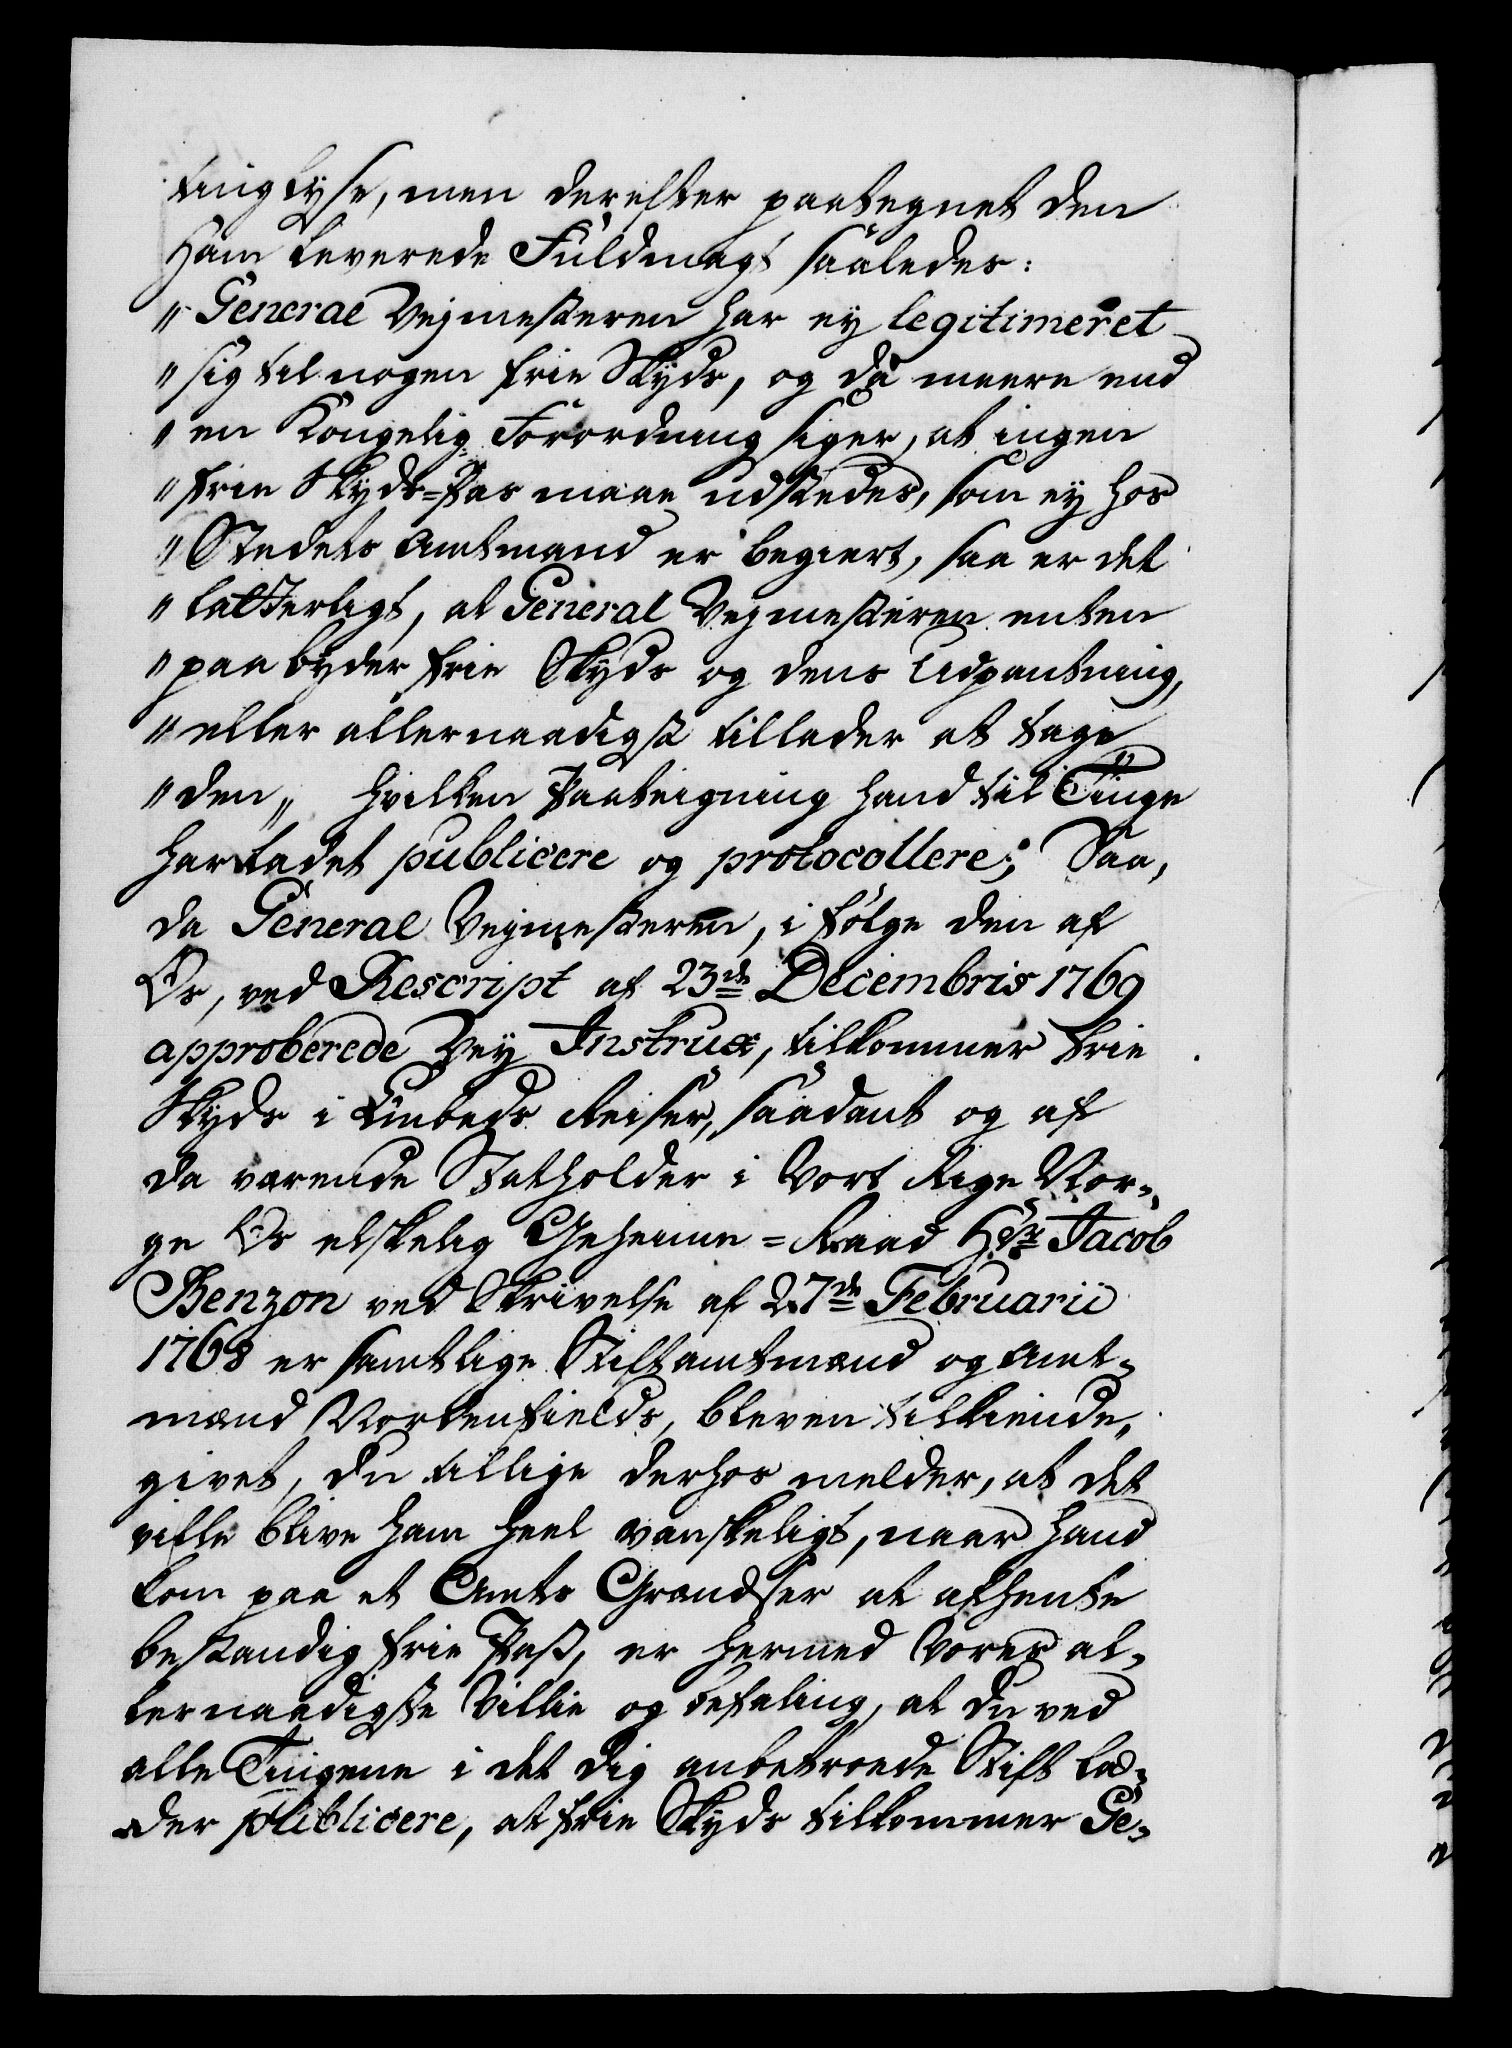 tinglyse, men derefter paategnet den
ham leverede Fuldmagt saaledes:
" General Vejmesteren har ey legitimeret
" sig til nogen frie Skyds, og da meere end
" en Kongelig Forordning siger, at ingen
" frie Skyds=Pas maae udstedes, som ey hos
" Stedets Amtmand er begiert, saa er det
" latterligt, at General Vejmesteren enten
" paabyder frie Skyds og dens Udpantning,
" eller allernaadigst tillader at tage
" den„ hvilken Paateigning hand til Tinge
har ladet publicere og protocollere; Saa,
da General Vejmesteren, i følge den af
Os, ved Rescript af 23de Decembris 1769
approberede Vey Instrux, tilkommer frie
Skyds i Embeds Reiser, saadant og af
da værende Statholder i Vort Rige Nor-
ge Os elskelig Geheime=Raad Hr Jacob
Benzon ved Skrivelse af 27de Februarii
1768 er samtlige Stiftamtmænd og Amt-
mænd Nordenfields, bleven tilkiende-
givet, du tillige derhos melder, at det
ville blive ham heel vanskeligt, naar hand
kom paa et Amts Grændser at afhente
bestandig frie Pass, er hermed Vores al-
lernaadigste Villie og Befaling, at du ved
alle Tingene i det dig anbetroede Stift lad-
der publicere, at frie Skyds tilkommer Ge-